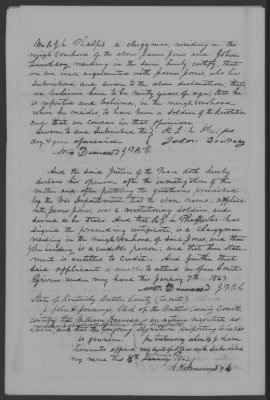 We R L Phelps a clergyman residing in the
neighbourhood of the above James Jones and John
Lindsey residing in the same hereby certify, that
we are well acquainted with James Jones, who has
Subscribed and sworn to the above declaration, that
we believe him to be ninety years of age; that he
is reputed and believed, in the neighbourhood
where he resides, to have been a soldier of the Revolution
and that we concur in that opinion.
Sworn to and Subscribed this R L Phelps
day & year aforesaid
J P B C
And the said Justice of the Peace doth hereby
declare his opinion, after the investigation of the
matter and after putting the questions prescribed
by the War Department, that the above named applicant
James Jones, was a revolutionary soldier and
served as he states. And that R L Phelps who has
signed the preceding certificate, is a clergyman
residing in the neighbourhood of said Jones, and that
John Lindsey is a credible person, and that their statement
is entitled to credit. And further that
said applicant is unable to attend in open Court.
Given under my hand this January 7th 1843
J P B C
State of Kentucky Butler County (Sct)
I John A Jennings Clerk of the Butler County Court
certify that
and that the foregoing Signature purporting to be his
is genuine. In testimony whereof I have
hereunto affixed my seal of office & Subscribed
my name this January